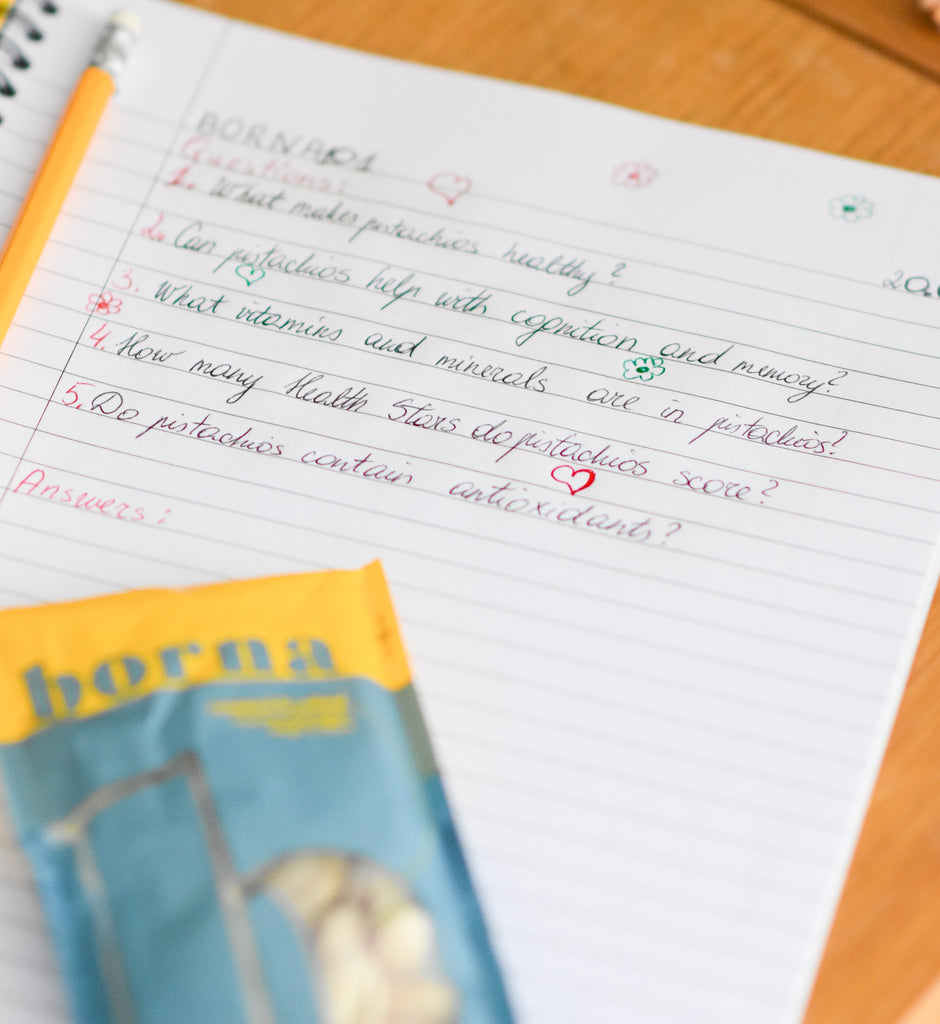 BORNA101
Questions:
1. What makes pistachios healthy?
2. Can pistachios help with cognition and memory?
3. What vitamins and minerals are in pistachios?
4. How many Health Stars do pistachios score?
5. Do pistachios contain antioxidants?
Answers:
borna